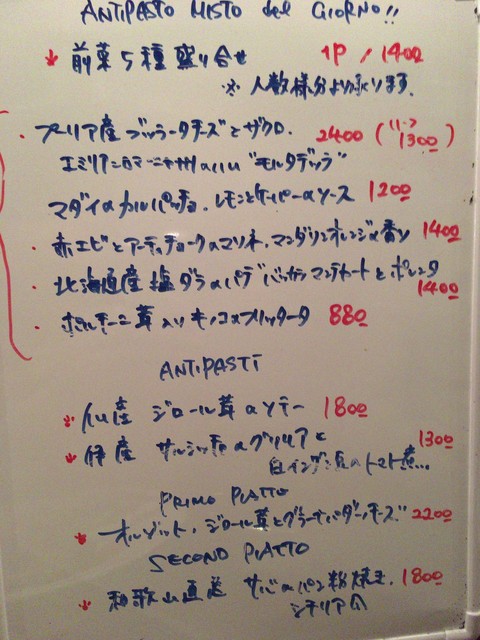 ANTIPASTO MISTO del GIORNO!!
前菜5種盛り合せ 1P / 1400
※ 人数様分より承ります。
プーリア産ブッラータチーズとザクロ。 2400 (ハーフ 1300)
エミリア=ロマーニャ州のIGP "モルタデッラ"
マダイのカルパッチョ、レモンとケーパーのソース 1200
赤エビとアーティチョークのマリネ、マンダリンオレンジの香り 1400
北海道産 塩ダラのパテ "バッカラ マンテカート" とポレンタ 1400
ポルチーニ茸入り キノコのフリッタータ 880
ANTIPASTI
仏産 ジロール茸のソテー 1800
伊産 サルシッチャのグリリアと 1300
白インゲン豆のトマト煮...
PRIMO PIATTO
オルゾット、ジロール茸とグラーナパダーノチーズ 2200
SECOND PIATTO
和歌山直送 サバのパン粉焼き 1800
シチリア風